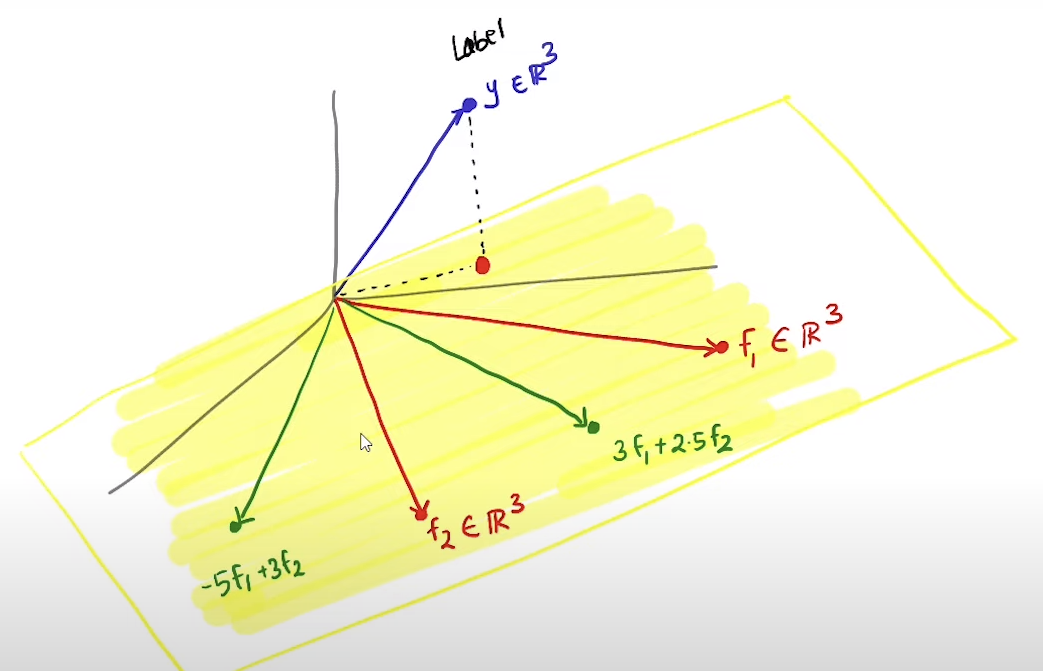 Label
y ∈ ℝ³
f₁ ∈ ℝ³
3f₁+2·5f₂
f₂ ∈ ℝ³
-5f₁+3f₂